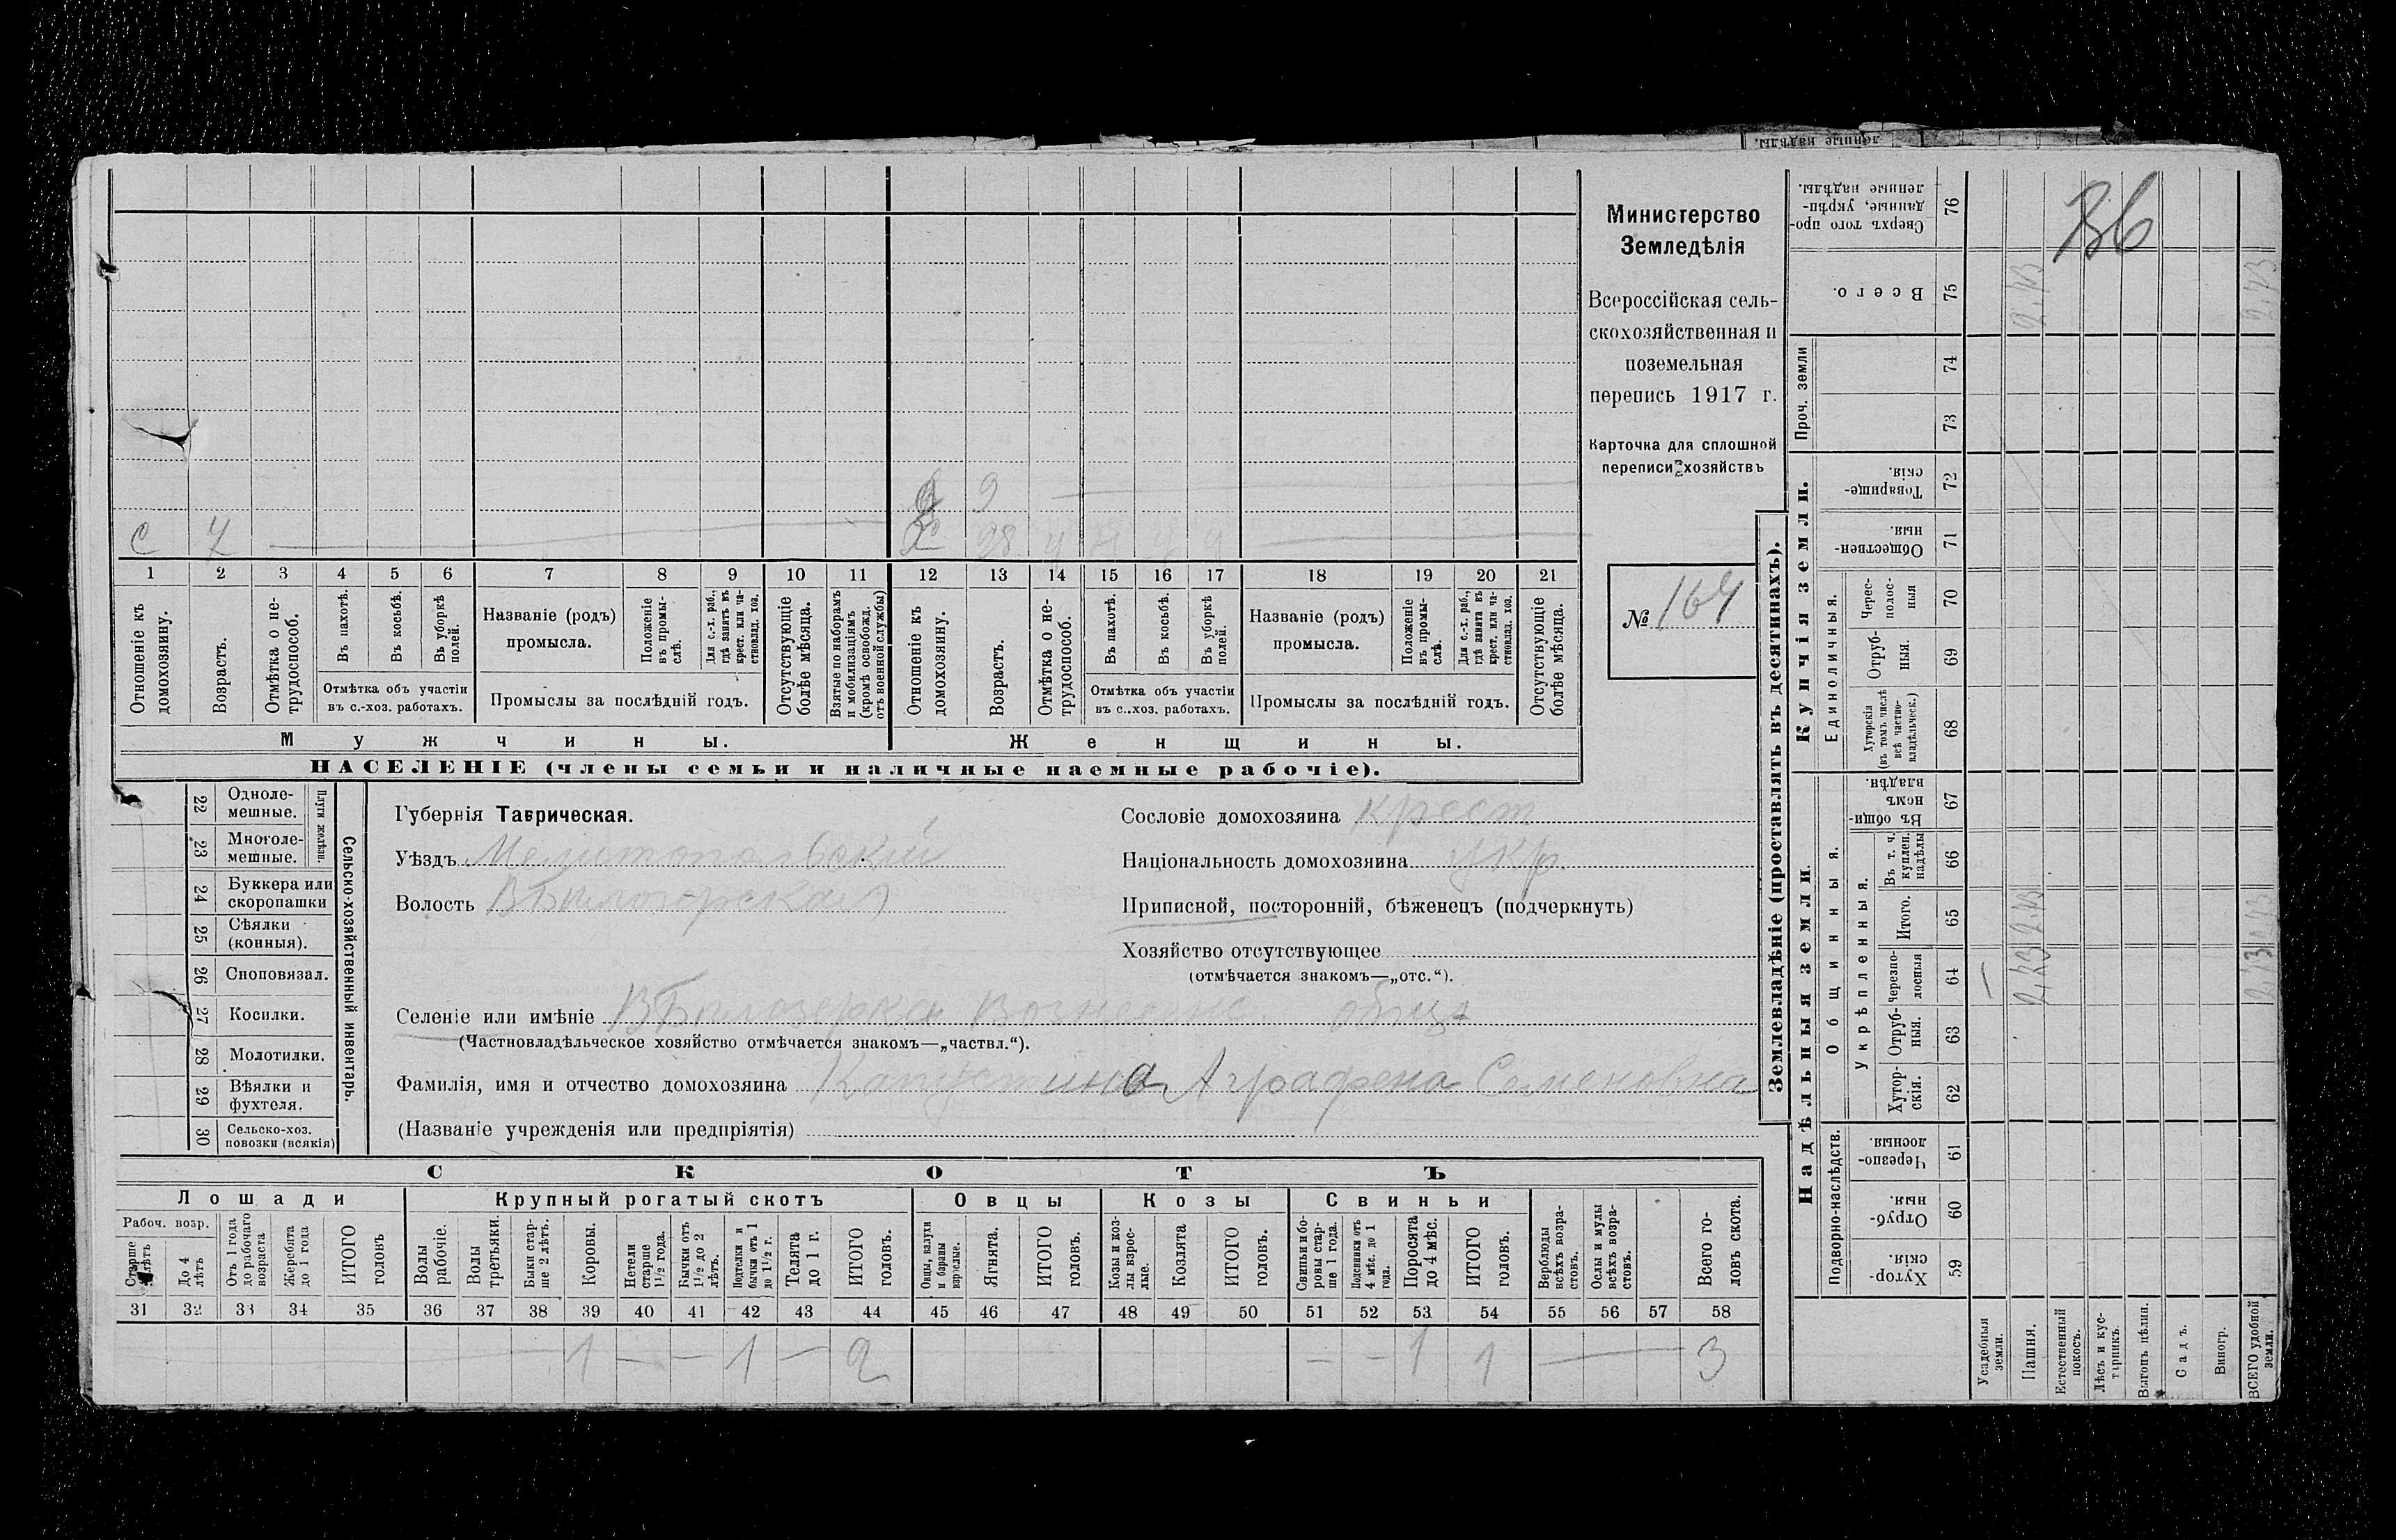 ленные надѣлы.
Министерство
Земледѣлія
Всероссійская сель-
скохозяйственная и
поземельная
перепись 1917 г.
Карточка для сплошной
переписи хозяйствъ
№ 164
9
С 7 28
1 2 3 4 5 6 7 8 9 10 11 12 13 14 15 16 17 18 19 20 21
Отношеніе къ домохозяину.
Возрастъ.
Отмѣтка о не-трудоспособ.
Въ пахотѣ.
Въ косьбѣ.
Въ уборкѣ полей.
Отмѣтка объ участіи
въ с.-хоз. работахъ.
Названіе (родъ)
промысла.
Положеніе въ промы-слѣ.
Для с.-х. раб., гдѣ занятъ въ крест. или ча-стновлад. хоз.
Промыслы за послѣдній годъ.
Отсутствующіе болѣе мѣсяца.
Взятые по наборамъ и мобилизаціямъ (кромѣ освобожд. отъ военной службы)
Отношеніе къ домохозяину.
Возрастъ.
Отмѣтка о не-трудоспособ.
Въ пахотѣ.
Въ косьбѣ.
Въ уборкѣ полей.
Отмѣтка объ участіи
въ с.-хоз. работахъ.
Названіе (родъ)
промысла.
Положеніе въ промы-слѣ.
Для с.-х. раб., гдѣ занята въ крест. или ча-стновлад. хоз.
Промыслы за послѣдній годъ.
Отсутствующіе болѣе мѣсяца.
Мужчины. Женщины.
НАСЕЛЕНІЕ (члены семьи и наличные наемные рабочіе).
22 Одноле-мешные.
23 Многоле-мешные.
Плуги желѣзн.
24 Буккера или скоропашки
25 Сѣялки (конныя).
26 Сноповязал.
27 Косилки.
28 Молотилки.
29 Вѣялки и фухтеля.
30 Сельско-хоз. повозки (всякія)
Сельско-хозяйственный инвентарь.
Губернія Таврическая.
Уѣздъ Мелитопольскій
Волость В Бѣлозерская
Сословіе домохозяина крест
Національность домохозяина укр.
Приписной, посторонній, бѣженецъ (подчеркнуть)
Хозяйство отсутствующее
(отмѣчается знакомъ—„отс.“).
Селеніе или имѣніе В Бѣлозерка Вознесенс. общ
(Частновладѣльческое хозяйство отмѣчается знакомъ—„частвл.“).
Фамилія, имя и отчество домохозяина Капустина Аграфена Семеновна
(Названіе учрежденія или предпріятія)
СКОТЪ
Лошади Крупный рогатый скотъ Овцы Козы Свиньи
Рабоч. возр.
Старше лѣтъ
До 4 лѣтъ
Отъ 1 года до рабочаго возраста
Жеребята до 1 года
ИТОГО головъ
Волы рабочіе.
Волы третьяки.
Быки стар-ше 2 лѣтъ.
Коровы.
Нетели старше 1½ года.
Бычки отъ 1½ до 2 лѣтъ.
Подтелки и бычки отъ 1 до 1½ г.
Телята до 1 г.
ИТОГО головъ.
Овцы, валухи и бараны взрослые.
Ягнята.
ИТОГО головъ.
Козы и коз-лы взрос-лые.
Козлята
ИТОГО головъ.
Свиньи и бо-ровы стар-ше 1 года.
Подсвинки отъ 4 мѣс. до 1 года.
Поросята до 4 мѣс.
ИТОГО головъ.
Верблюды всѣхъ возра-стовъ.
Ослы и мулы всѣхъ возра-стовъ.
Всего го-ловъ скота.
31 32 33 34 35 36 37 38 39 40 41 42 43 44 45 46 47 48 49 50 51 52 53 54 55 56 57 58
1 — — 1 — 2 — — 1 1 — 3
Землевладѣніе (проставлять въ десятинахъ).
Надѣльныя земли. Купчія земли.
Подворно-наслѣдств.
Общинныя.
Укрѣпленныя.
Единоличныя.
Проч. земли
Хутор-скія. 59
Отруб-ныя. 60
Черезпо-лосныя. 61
Хутор-скія. 62
Отруб-ныя. 63
Черезпо-лосныя 64
Итого. 65
Въ т. ч. куплен. надѣлы 66
Въ общин-номъ владѣн. 67
Хуторскія (въ томъ числѣ всѣ частно-владѣльческ.) 68
Отруб-ныя. 69
Черес-полос-ныя 70
Обществен-ныя. 71
Товарище-скія. 72
73
74
Всего. 75
Сверхъ того про-данные, укрѣп-ленные надѣлы. 76
Усадебныя земли.
Пашня.
Естественный покосъ.
Лѣсъ и кус-тарникъ.
Выгонъ цѣлин.
Садъ.
Виногр.
ВСЕГО удобной земли.